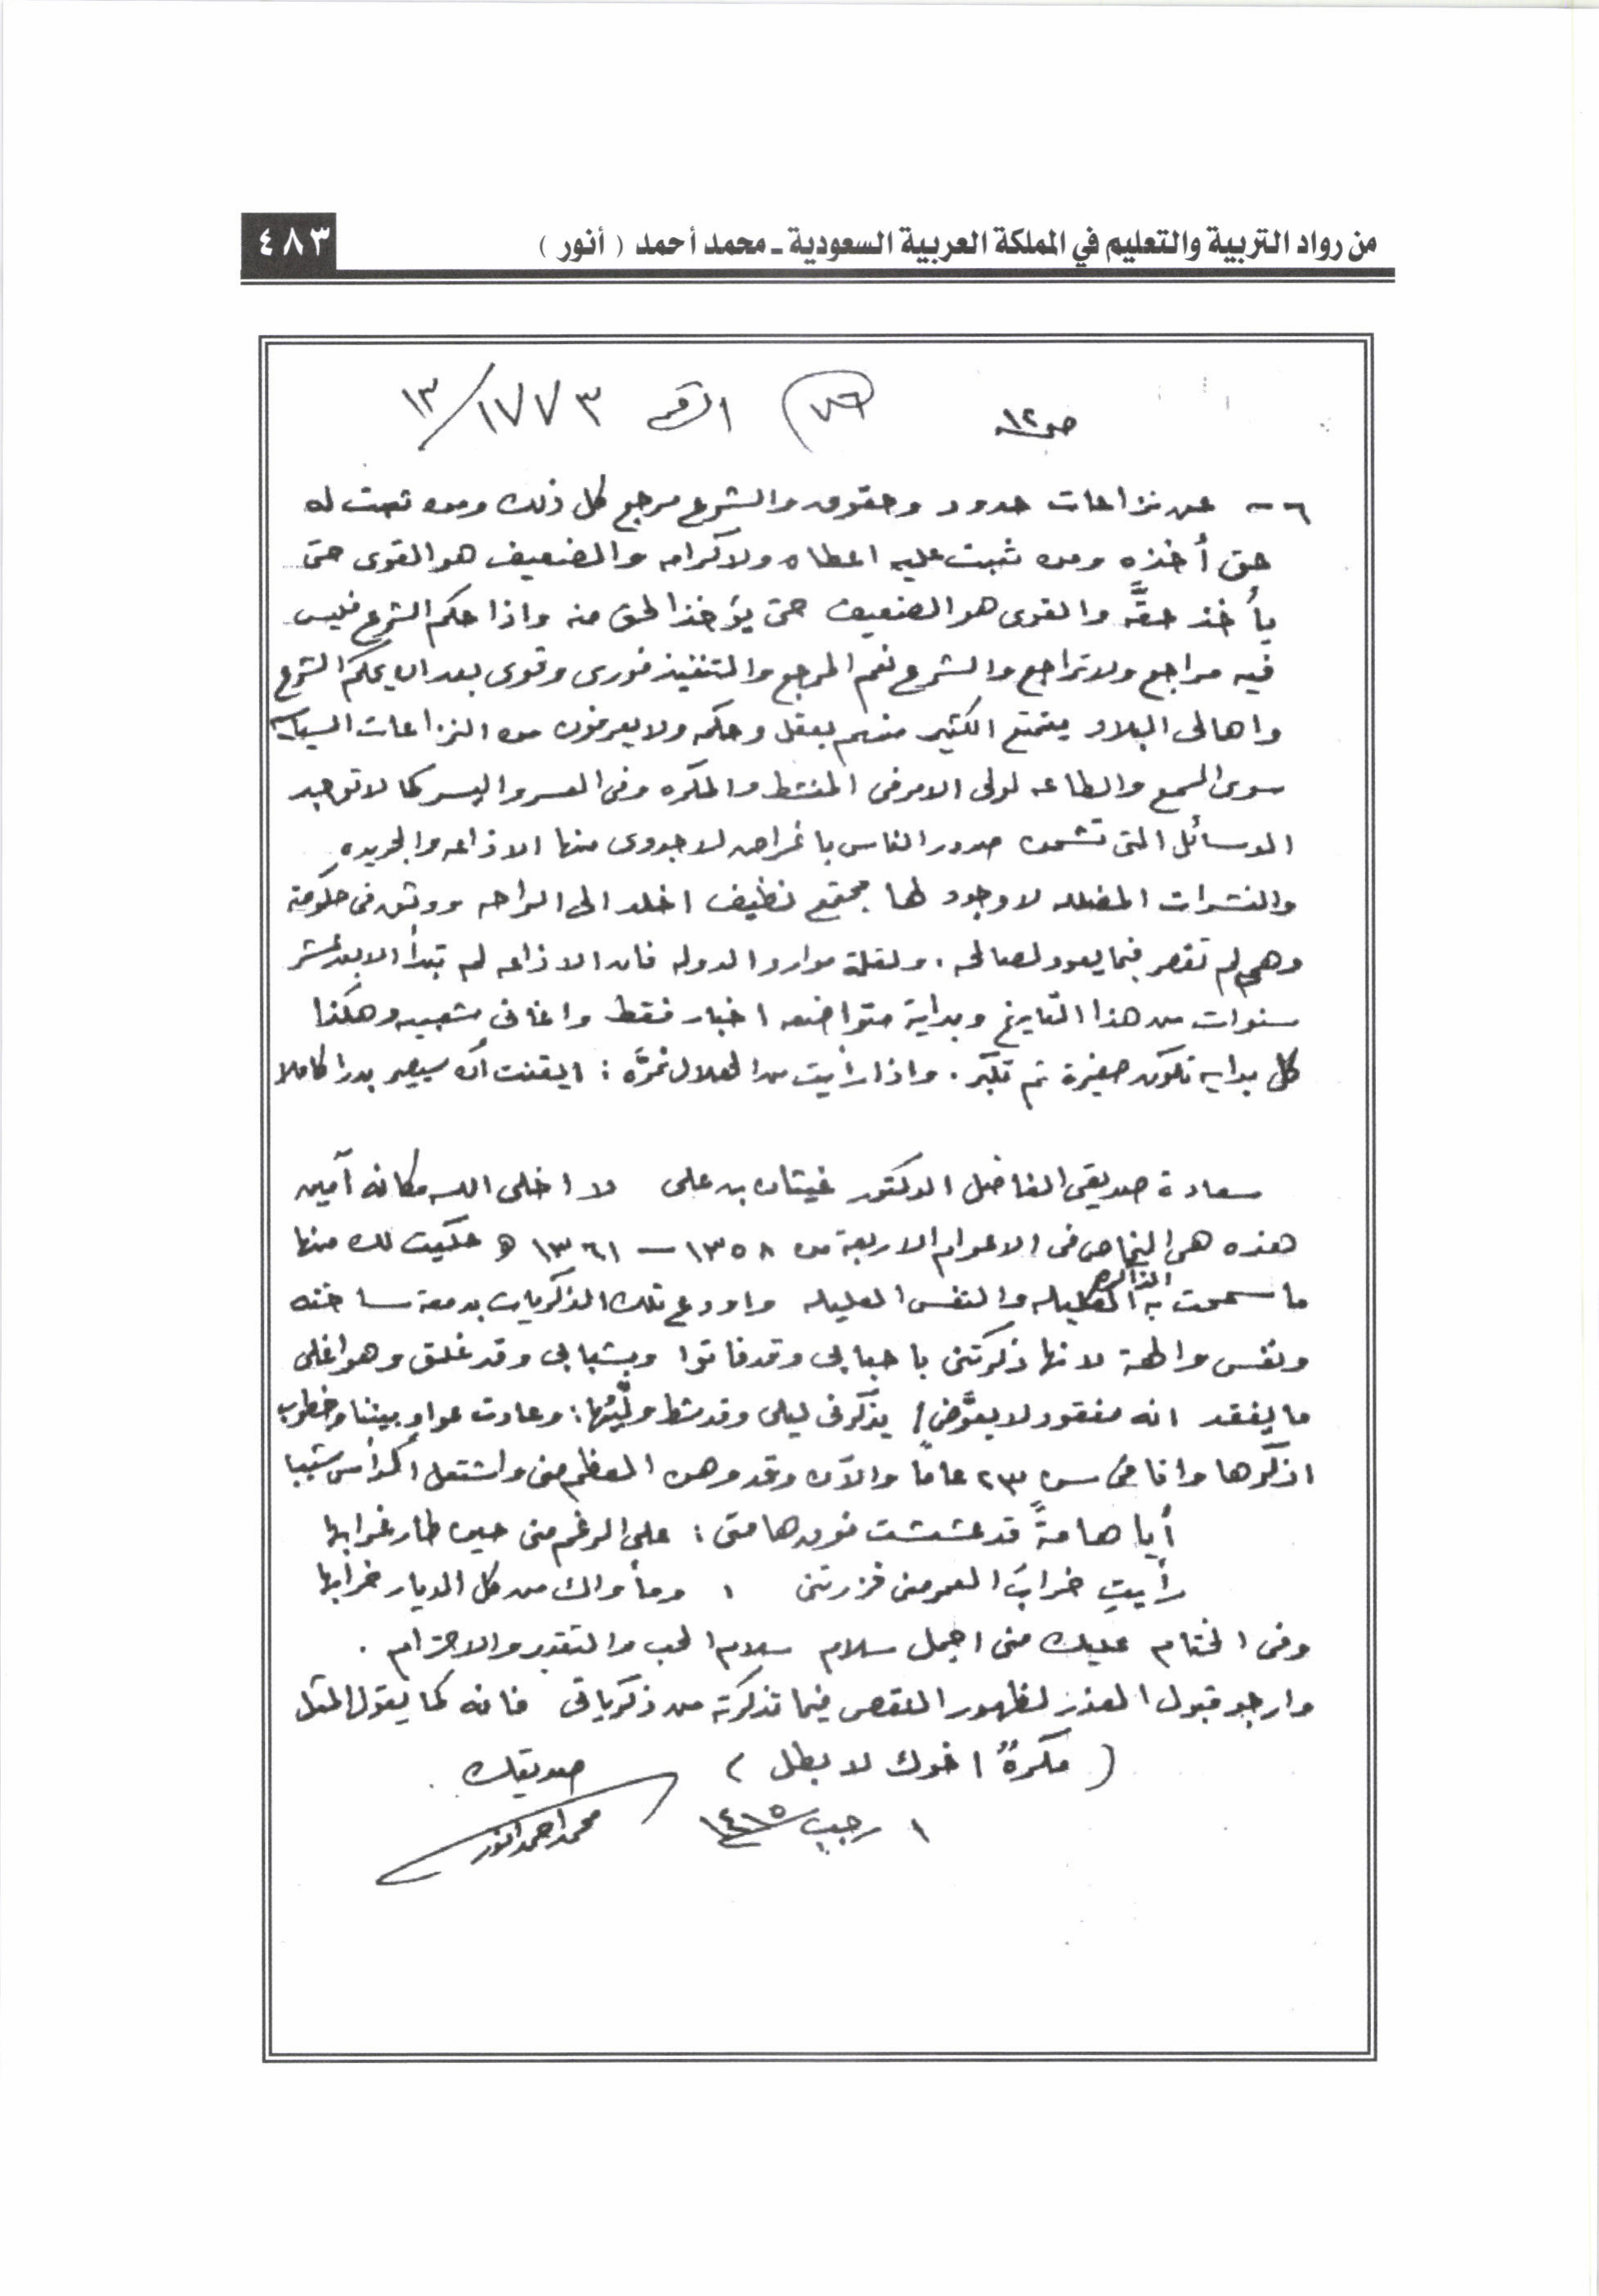 من رواد التربية والتعليم في المملكة العربية السعودية ـ محمد أحمد ( أنور )
٤٨٣
ص١٢
٧٦
الرقم ١٧٧٣/١٣
٦ - عن نزاعات حدود وحقوق والشرع مرجع كل ذلك ومن تثبت له
حق أخذه ومن ثبت عليه اعطاه ولاكرامه والضعيف هو القوى حتى
يأخذ حقَّه والقوى هو الضعيف حتى يؤخذ الحق منه واذا حكم الشرع فليس
فيه مراجع ولاتراجع والشرع نعم المرجع والتنفيذ فورى وقوى بعد ان يحكم الشرع
واهالى البلاد يتمتع الكثير منهم بعقل وحكمه ولا يعرفون من النزاعات السياسيه
سوى السمع والطاعه لولى الامر فى المنشط والمكره وفى العسر واليسر كما لا توجد
الوسائل التى تشحن صدور الناس باغراض لا جدوى منها الاذاعه والجريده
والنشرات المضلله لا وجود لها مجتمع نظيف اخلد الى الراحه ووثق فى حكومته
وهى لم تقصر فيما يعود لصالحه . ولقلة موارد الدوله فان الاذاعه لم تبدأ الا بعد عشر
سنوات من هذا التاريخ وبداية متواضعه اخبار فقط واغانى شعبيه وهكذا
كل بدايه تكون صغيرة ثم تكبر . واذا رأيت من الهلال نموَّه : ايقنت أن سيصير بدرا كاملا
سعادة صديقى الفاضل الدكتور غيثان بن على لا اخلى الله مكانه آمين
هذه هى النماص فى الاعوام الاربعة من ١٣٥٨ – ١٣٦١ ه حكيت لك منها
ما سمحت به الذاكره الكليله والنفس العليله واودع تلك الذكريات بدمعة ساخنه
ونفس والهة لانها ذكرتنى باحبابى وقد فاتوا وبشبابى وقد غلق وهو اغلى
ما يفقد انه مفقود لا يعوَّض / يذكرنى ليلى وقد شط وليُّها : وعادت عواد بيننا وخطوب
اذكرها وانا فى سن ٢٣ عاماً والآن وقد وهن العظم منى واشتعل الرأس شيبا
أيا هامةً قد عششت فوق هامتى : على الرغم منى حين طار غرابها
رأيتِ خرابَ العمر منى فزرتنى : ومأواك من كل الديار خرابها
وفى الختام عليك منى اجمل سلام سلام الحب والتقدير والاحترام .
وارجو قبول العذر لظهور النقص فيما تذكرته من ذكرياتى فانه كما يقول المثل
( مكرهٌ اخوك لا بطل ) صديقك
١ رجب ١٤١٥ محمد احمد انور